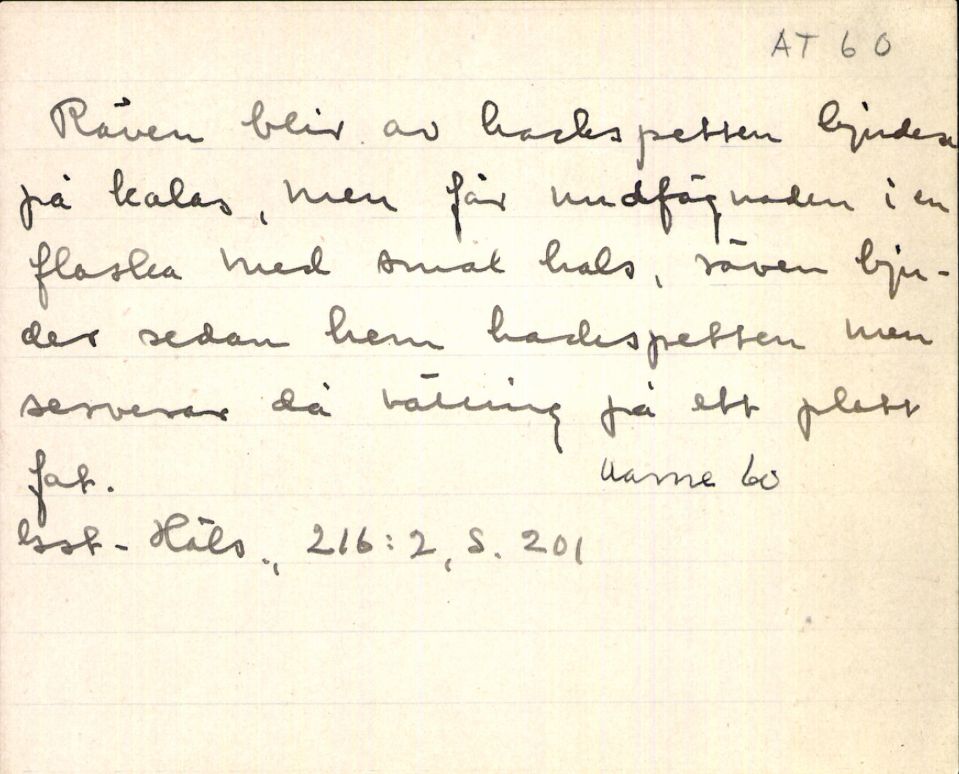 AT 60
Räven blir av hackspetten bjuden
på kalas, men får undfägnaden i en
flaska med smal hals, räven bju-
der sedan hem hackspetten men
serverar då välling på ett platt
fat. Aarne 60
- Häls., 216:2, S. 201